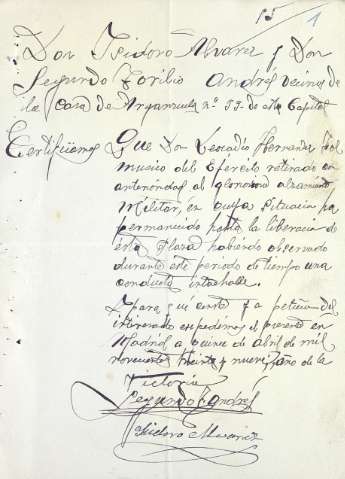 15 1
Don Isidoro Alvarez y Don
Segundo Toribio Andrés vecinos de
la casa de Arganzuela nº 33 de esta Capital
Certifican Que Don Leocadio Hernandez
musico del Ejercito retirado en
anterioridad al glorioso alzamiento
Militar, en cuya situacion ha
permanecido hasta la liberacion de
esta Plaza habiendo observado
durante este periodo de tiempo una
conducta intachable.
Y para que conste y a peticion del
interesado expedimos el presente en
Madrid a quince de abril de mil
novecientos treinta y nueve, año de la
Victoria
Segundo Andrés
Isidoro Alvarez